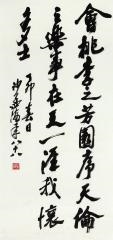 會桃李之芳園序天倫
之樂事在天一涯我懷
吉士
丁卯春日
沙孟海年八十八